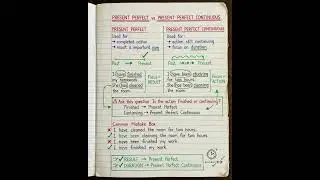 PRESENT PERFECT vs PRESENT PERFECT CONTINUOUS
PRESENT PERFECT
Used for:
→ completed action
→ result is important
Past → Present
I (have) finished
my homework.
She (has) cleaned
the room.
FOCUS =
RESULT
PRESENT PERFECT CONTINUOUS
Used for:
→ action still continuing
→ focus on duration
Past → Present
I (have been) studying
for two hours.
She (has been) cleaning
the room.
FOCUS =
ACTION
Ask this question: Is the action finished or continuing?
Finished → Present Perfect
Continuing → Present Perfect Continuous
Common Mistake Box
✗ I have cleaned the room for two hours.
✓ I have been cleaning the room for two hours.
✗ I have been finished my work.
✓ I have finished my work.
✓ RESULT → Present Perfect
✓ DURATION → Present Perfect Continuous